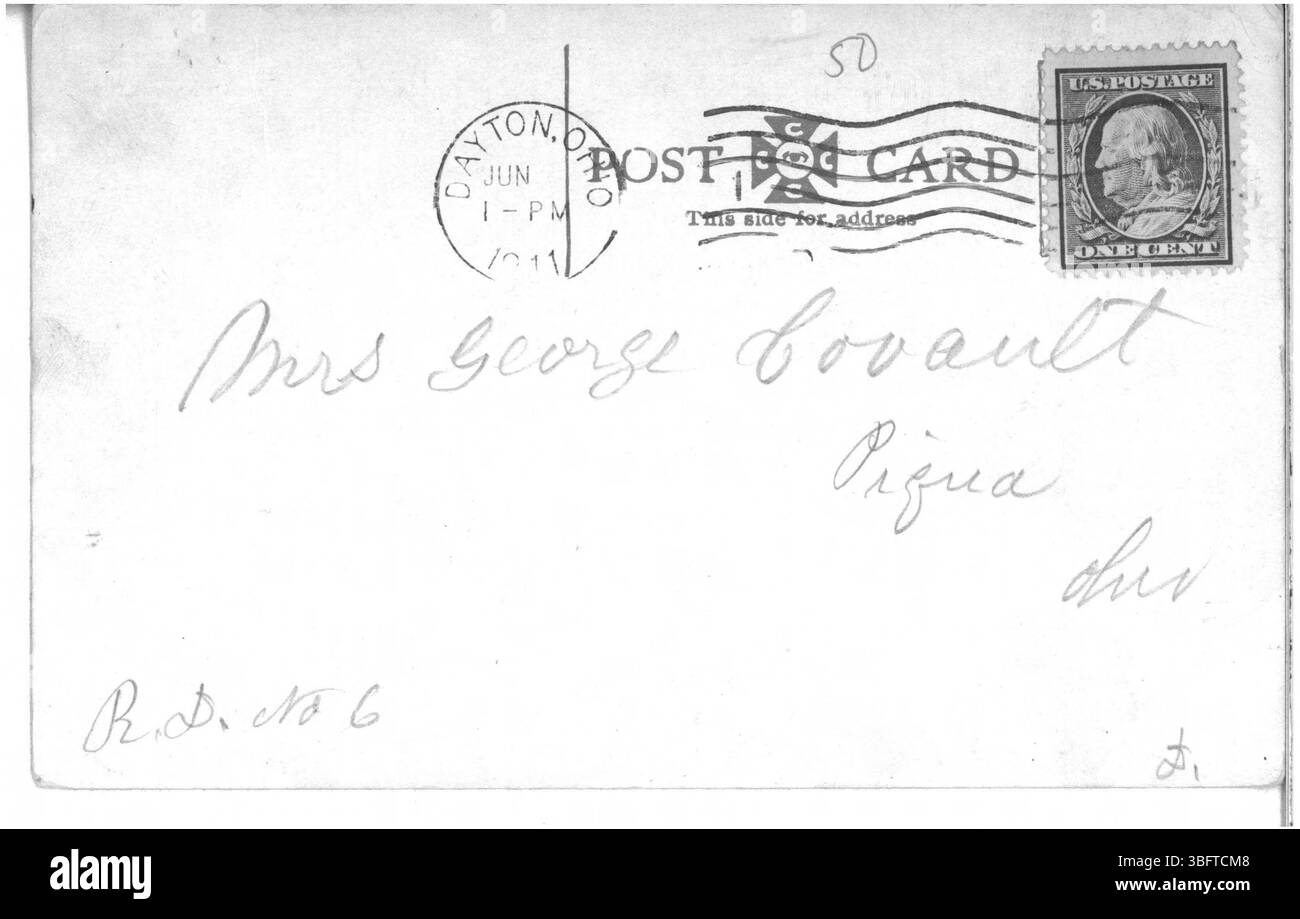 50
DAYTON, OHIO
JUN
1-PM
1911
POST CARD
This side for address
U.S. POSTAGE
ONE CENT
1
Mrs George Covault
Piqua
Ohio
R.D. No 6
D.
alamy
Image ID: 3BFTCM8
www.alamy.com